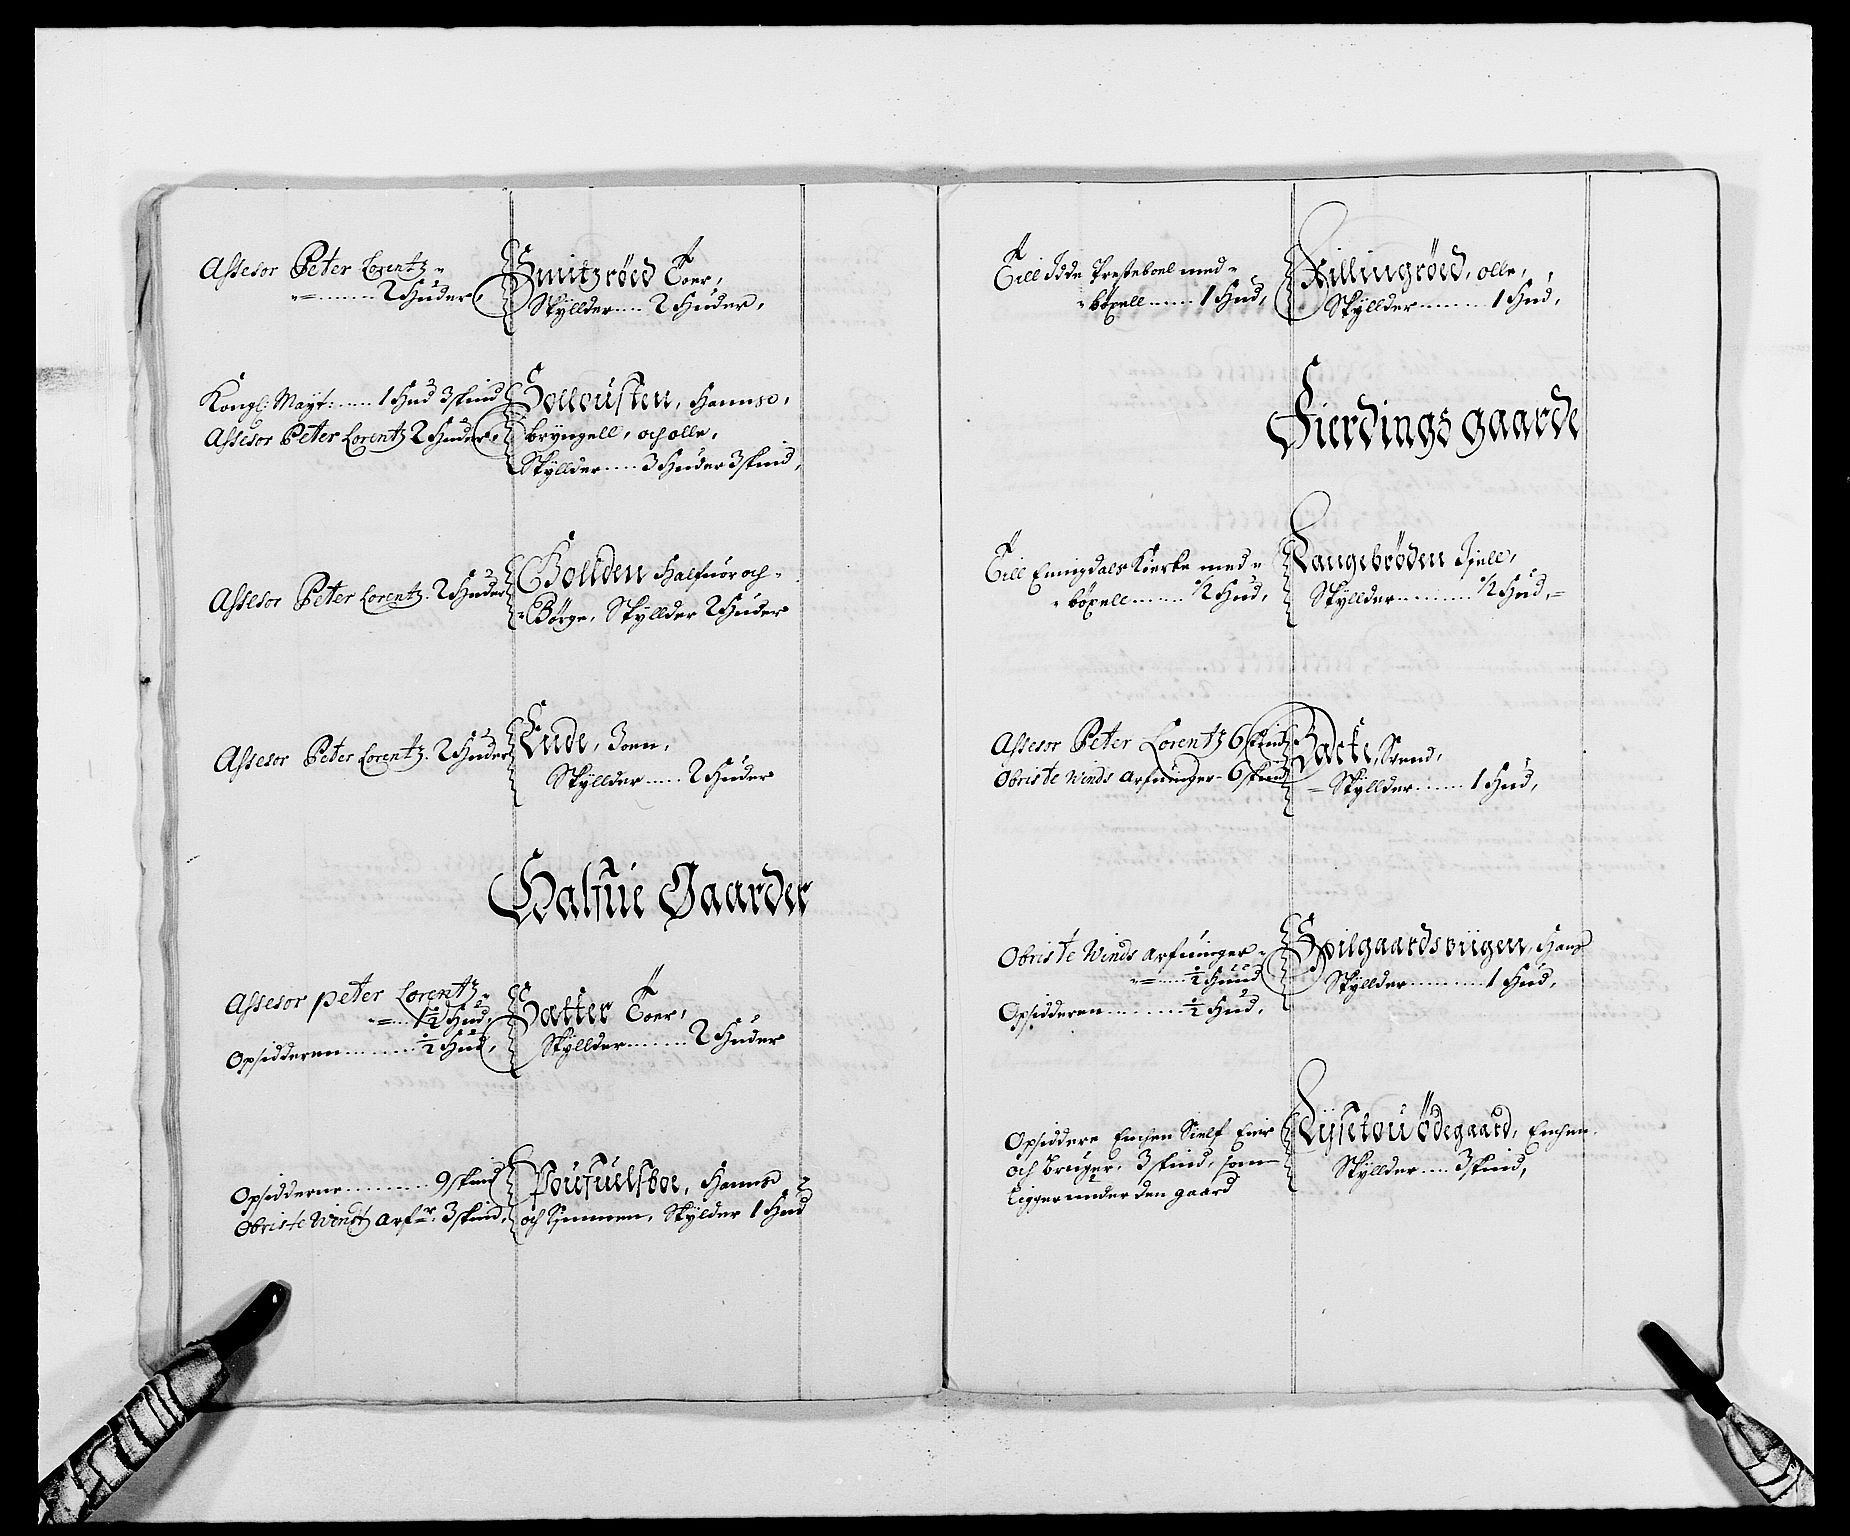 Assesor Peter Lorentz
2 Huder,
Smitzröed Toer,
Skÿllder..... 2 Huder,
Kongl: Maÿt:..... 1 Hud 3 skind
Assesor Peter Lorentz 2 Huder,
Sollousten, Hannse,
brÿngell, och olle,
Skÿllder..... 3 Huder 3 skind,
Assesor Peter Lorentz. 2 Huder
Bollden Halfuor och
Börge, Skÿllder 2 Huder
Assesor Peter Lorentz. 2 Huder
Ende, Joen,
Skÿllder...... 2 Huder
Halfue Gaarder
Assesor peter Lorentz
1½ Hud,
Opsidderen......... ½ Hud,
Satter Toer,
Skÿllder........ 2 Huder
Opsidderne........... 9 skind
Obriste Windtz Arf: 3 skind,
Poufuelsboe, Hannse
och Simmen, Skÿlder 1 Hud
Till Idde Presteboel med
böxell...... 1 Hud,
Killingröed, olle,
Skÿllder.......... 1 Hud,
Fierdings gaarde
Till Enningdals Kierke med
böxell....... ½ Hud,
Langebröden Kield,
Skÿllder.......... ½ Hud,
Assesor Peter Lorentz 6 skind
Obriste Winds Arfuinger 6 skind
Backe, Svend,
Skÿllder....... 1 Hud,
Obriste Winds Arfuinger
½ Huud
Opsidderen.......... ½ Hud,
Spilgaardsviigen, Hans
Skÿllder........... 1 Hud,
Opsiddere Enchen Sielf Eier
och bruger. 3 skind, som
Legger under den gaard
Lÿsetou Ödegaard, Enchen
Skÿllder.... 3 skind,